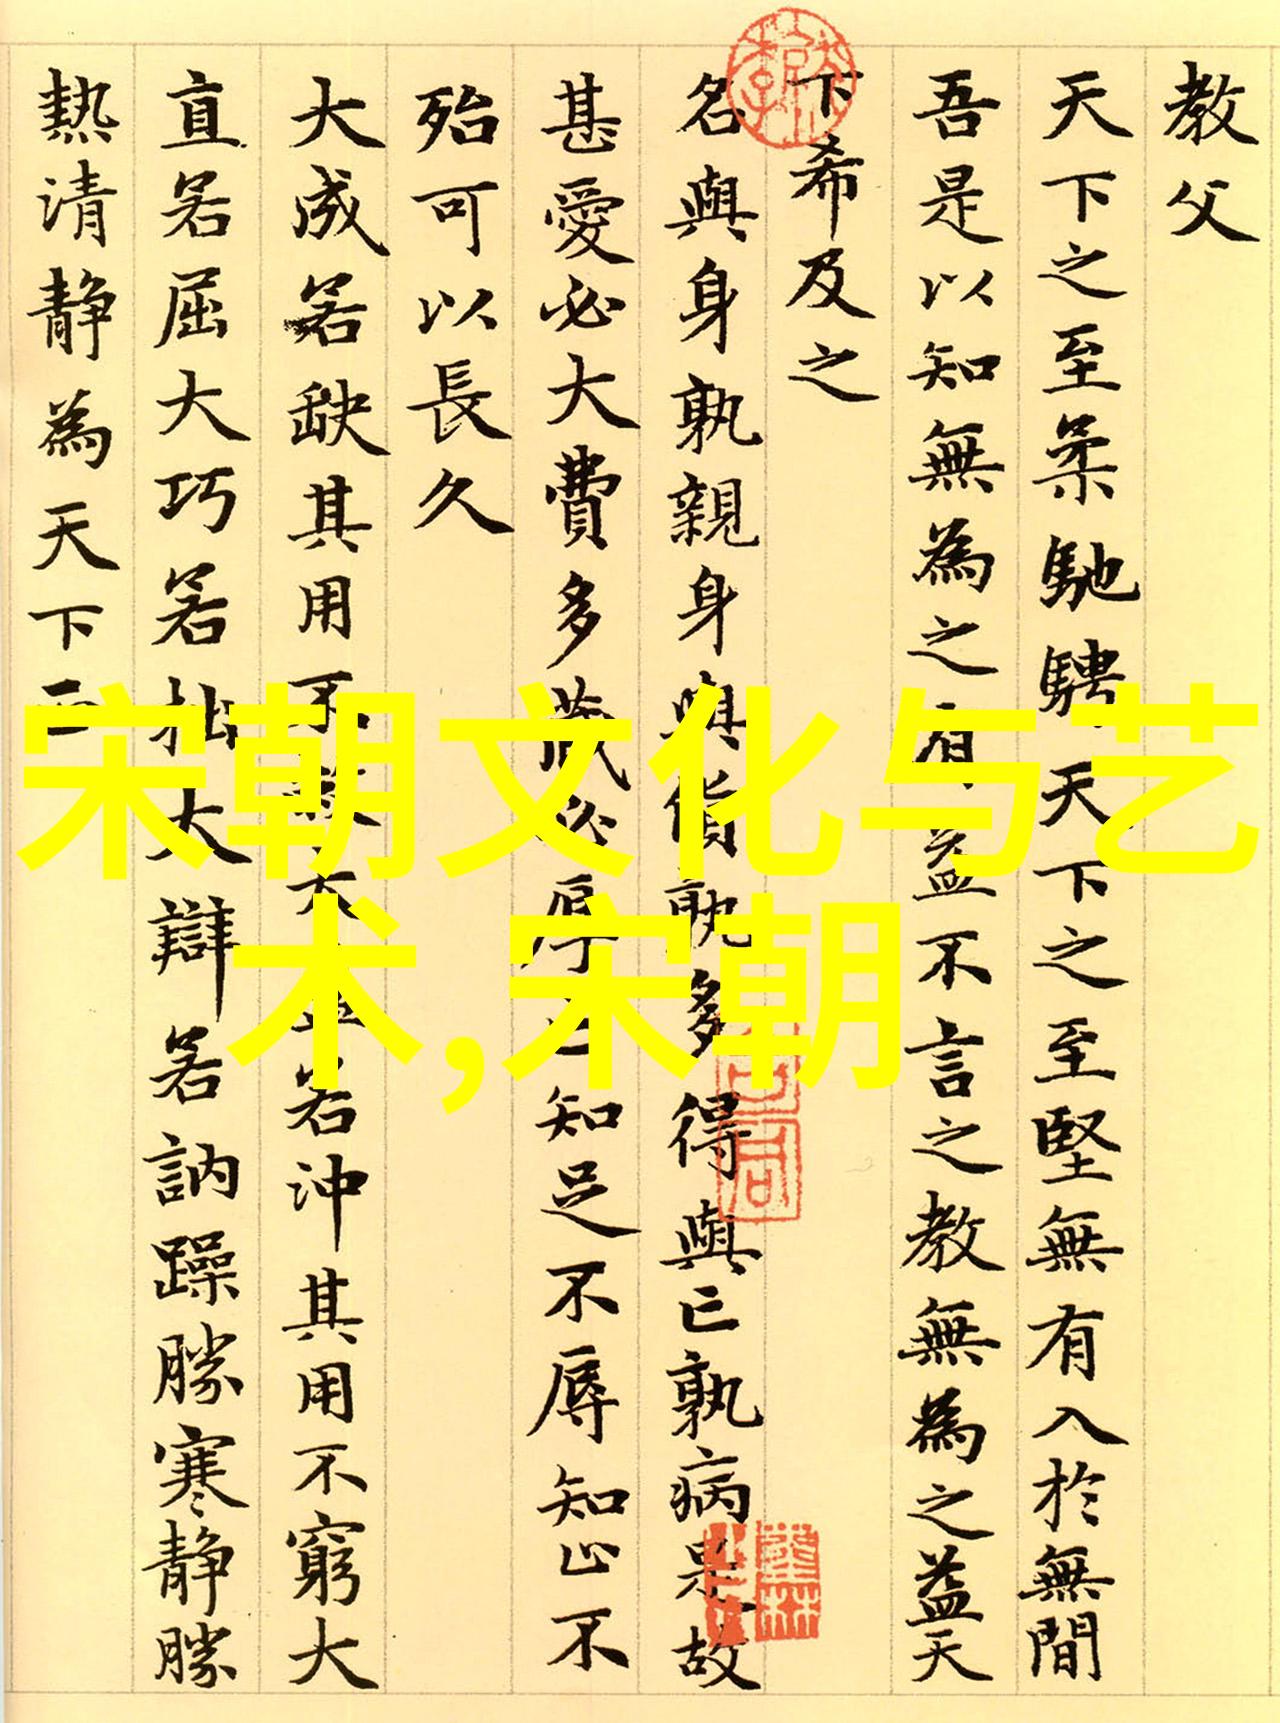 教父
天下之至柔馳騁天下之至堅無有入於無間
吾是以知無為之有益不言之教無為之益天
下希及之
名與身孰親身與貨孰多得與亡孰病是故
甚愛必大費多藏必厚亡知足不辱知止不
殆可以長久
大成若缺其用不大盈若沖其用不窮大
直若屈大巧若拙大辯若訥躁勝寒静勝
熱清静為天下正
宋朝文化与艺
术,宋朝